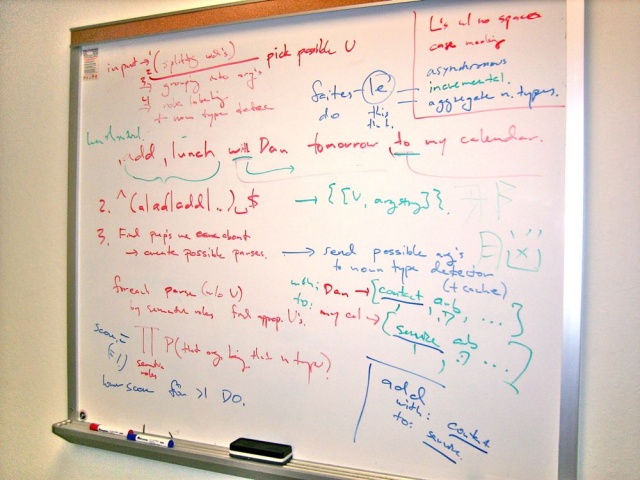 L's w/ no spaces
case marking
asynchronous
incremental.
aggregate n. types.
input → 1 (splitting wds's) pick possible V
2
3 grouping into arg's
4
to noun type detec
faites - le
do this
add, lunch with Dan tomorrow, to my calendar.
2. ^(a|ad|add|..)␣$ → {[V, argstring]}.
3. Find prep's we care about
→ create possible parses. → send possible arg's
to noun type detector
(+ cache)
foreach parse (w/o V)
by semantic roles find approp. V's.
with: Dan → {contact, arb, ... }
to: my cal → {service, arb ... }
score =
(≤1) ∏ P(that arg being that n type)
semantic
roles
low score for >1 DO.
add
with: contact
to: service